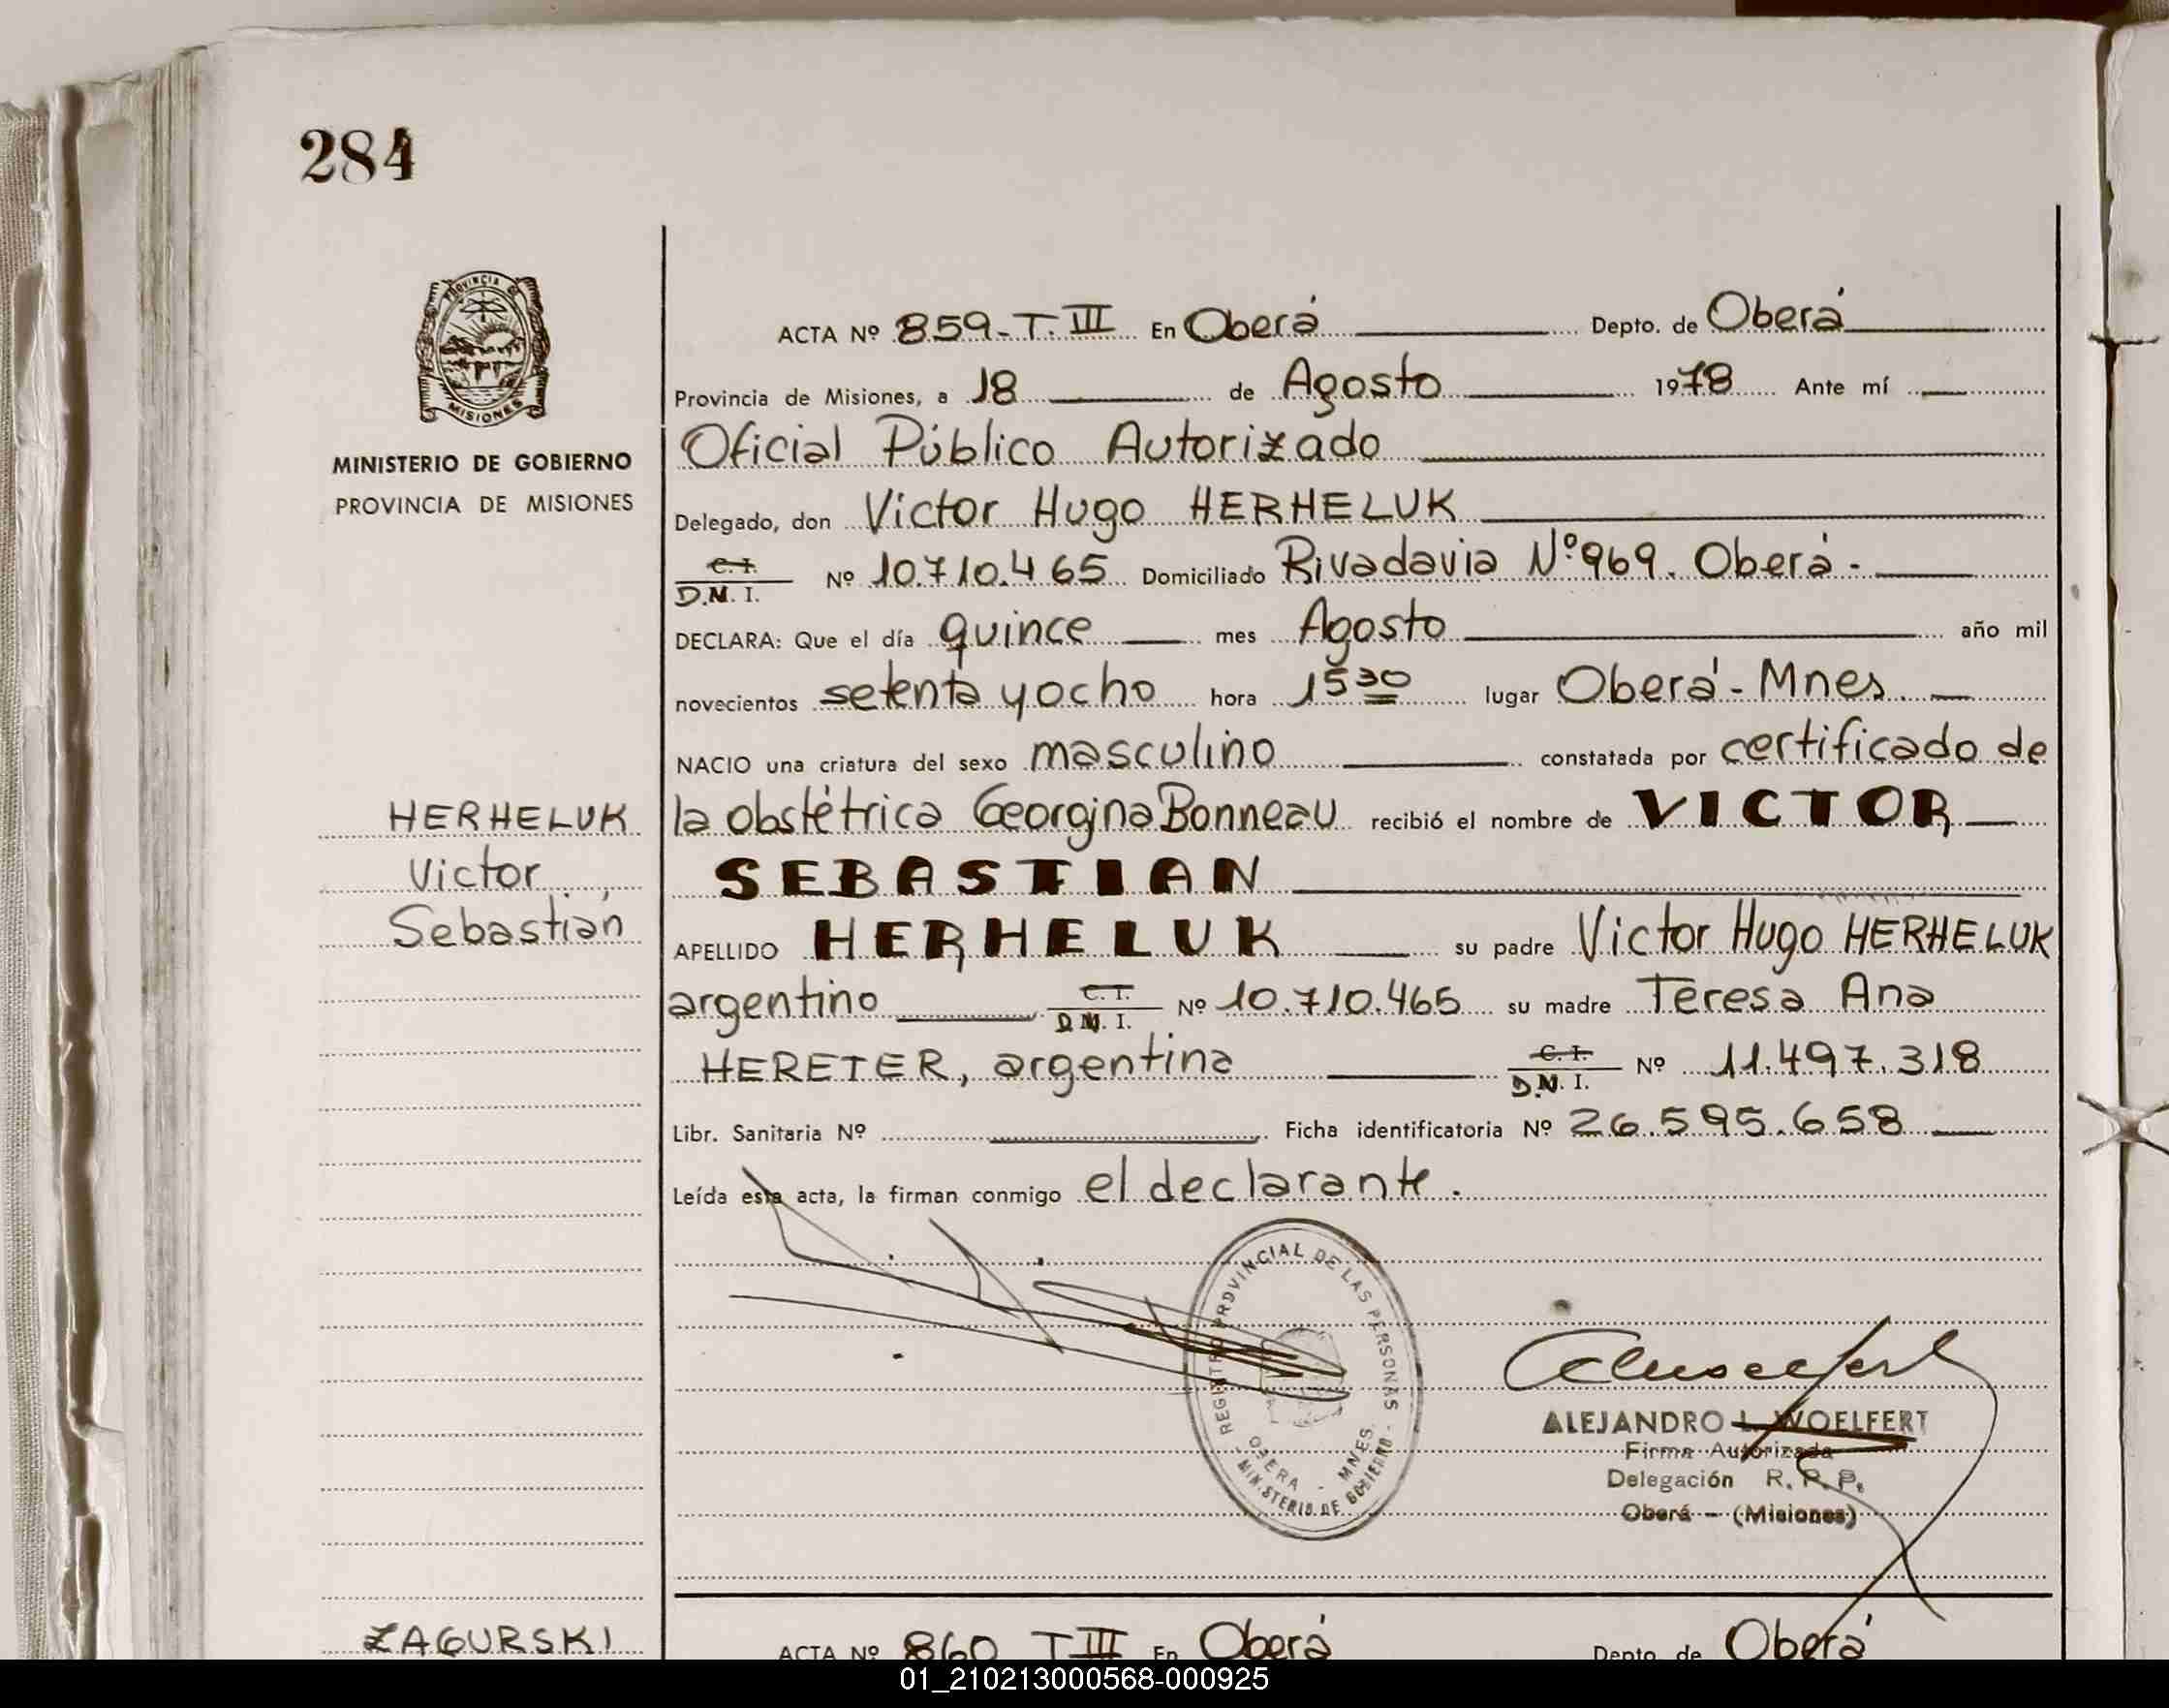 284
PROVINCIA DE
MISIONES
MINISTERIO DE GOBIERNO
PROVINCIA DE MISIONES
ACTA Nº 859-T.III En Oberá Depto. de Oberá
Provincia de Misiones, a 18 de Agosto 1978 Ante mí
Oficial Público Autorizado
Delegado, don Victor Hugo HERHELUK
C.I.
D.N.I. Nº 10.710.465 Domiciliado Rivadavia Nº 969. Oberá.-
DECLARA: Que el día quince mes Agosto año mil
novecientos setenta y ocho hora 15 30 lugar Oberá-Mnes.
NACIO una criatura del sexo masculino constatada por certificado de
la obstétrica Georgina Bonneau recibió el nombre de VICTOR
SEBASTIAN
APELLIDO HERHELUK su padre Victor Hugo HERHELUK
argentino C.I.
D.N.I. Nº 10.710.465 su madre Teresa Ana
HERETER, argentina C.I.
D.N.I. Nº 11.497.318
Libr. Sanitaria Nº Ficha identificatoria Nº 26.595.658
Leída esta acta, la firman conmigo el declarante.
HERHELUK
Victor
Sebastián
REGISTRO PROVINCIAL DE LAS PERSONAS
OBERA - MNES.
MINISTERIO DE GOBIERNO
ALEJANDRO L. WOELFERT
Firma Autorizada
Delegación R. P. P.
Oberá - (Misiones)
ZAGURSKI
ACTA Nº 860 T III En Oberá Depto. de Oberá
01_210213000568-000925